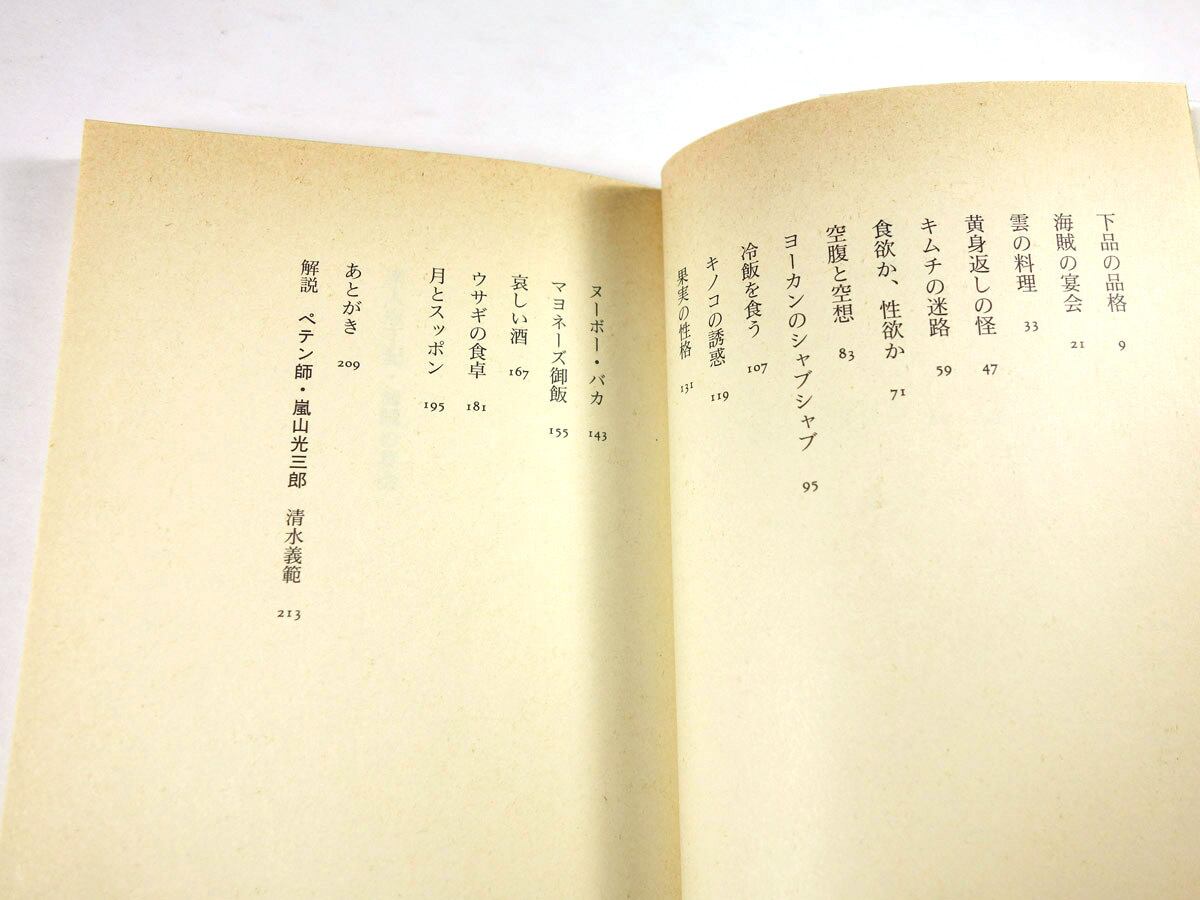 下品の品格 9
海賊の宴会 21
雲の料理 33
黄身返しの怪 47
キムチの迷路 59
食欲か、性欲か 71
空腹と空想 83
ヨーカンのシャブシャブ 95
冷飯を食う 107
キノコの誘惑 119
果実の性格 131
ヌーボー・バカ 143
マヨネーズ御飯 155
哀しい酒 167
ウサギの食卓 181
月とスッポン 195
あとがき 209
解説 ペテン師・嵐山光三郎 清水義範 213